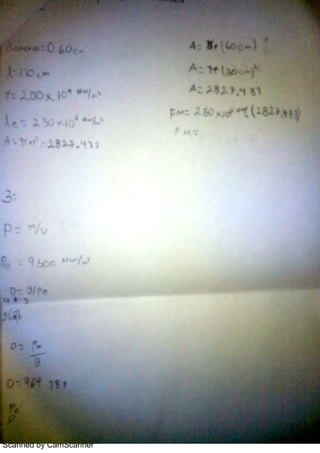 diametro=0.60cm
l=110cm
Y=200x10⁹ Nw/m²
Le=250x10⁶ Nw/m²
A=πr²=2827.433
A=πr(60cm)
A=πr(30cm)²
A=2827.433
FM=250x10⁶ (2827.433)
FM=
3=
P=m/v
Pe=9500 Nw/m³
D=g/Pe
D=Pe/g
D=969 387
Pe
D
Scanned by CamScanner